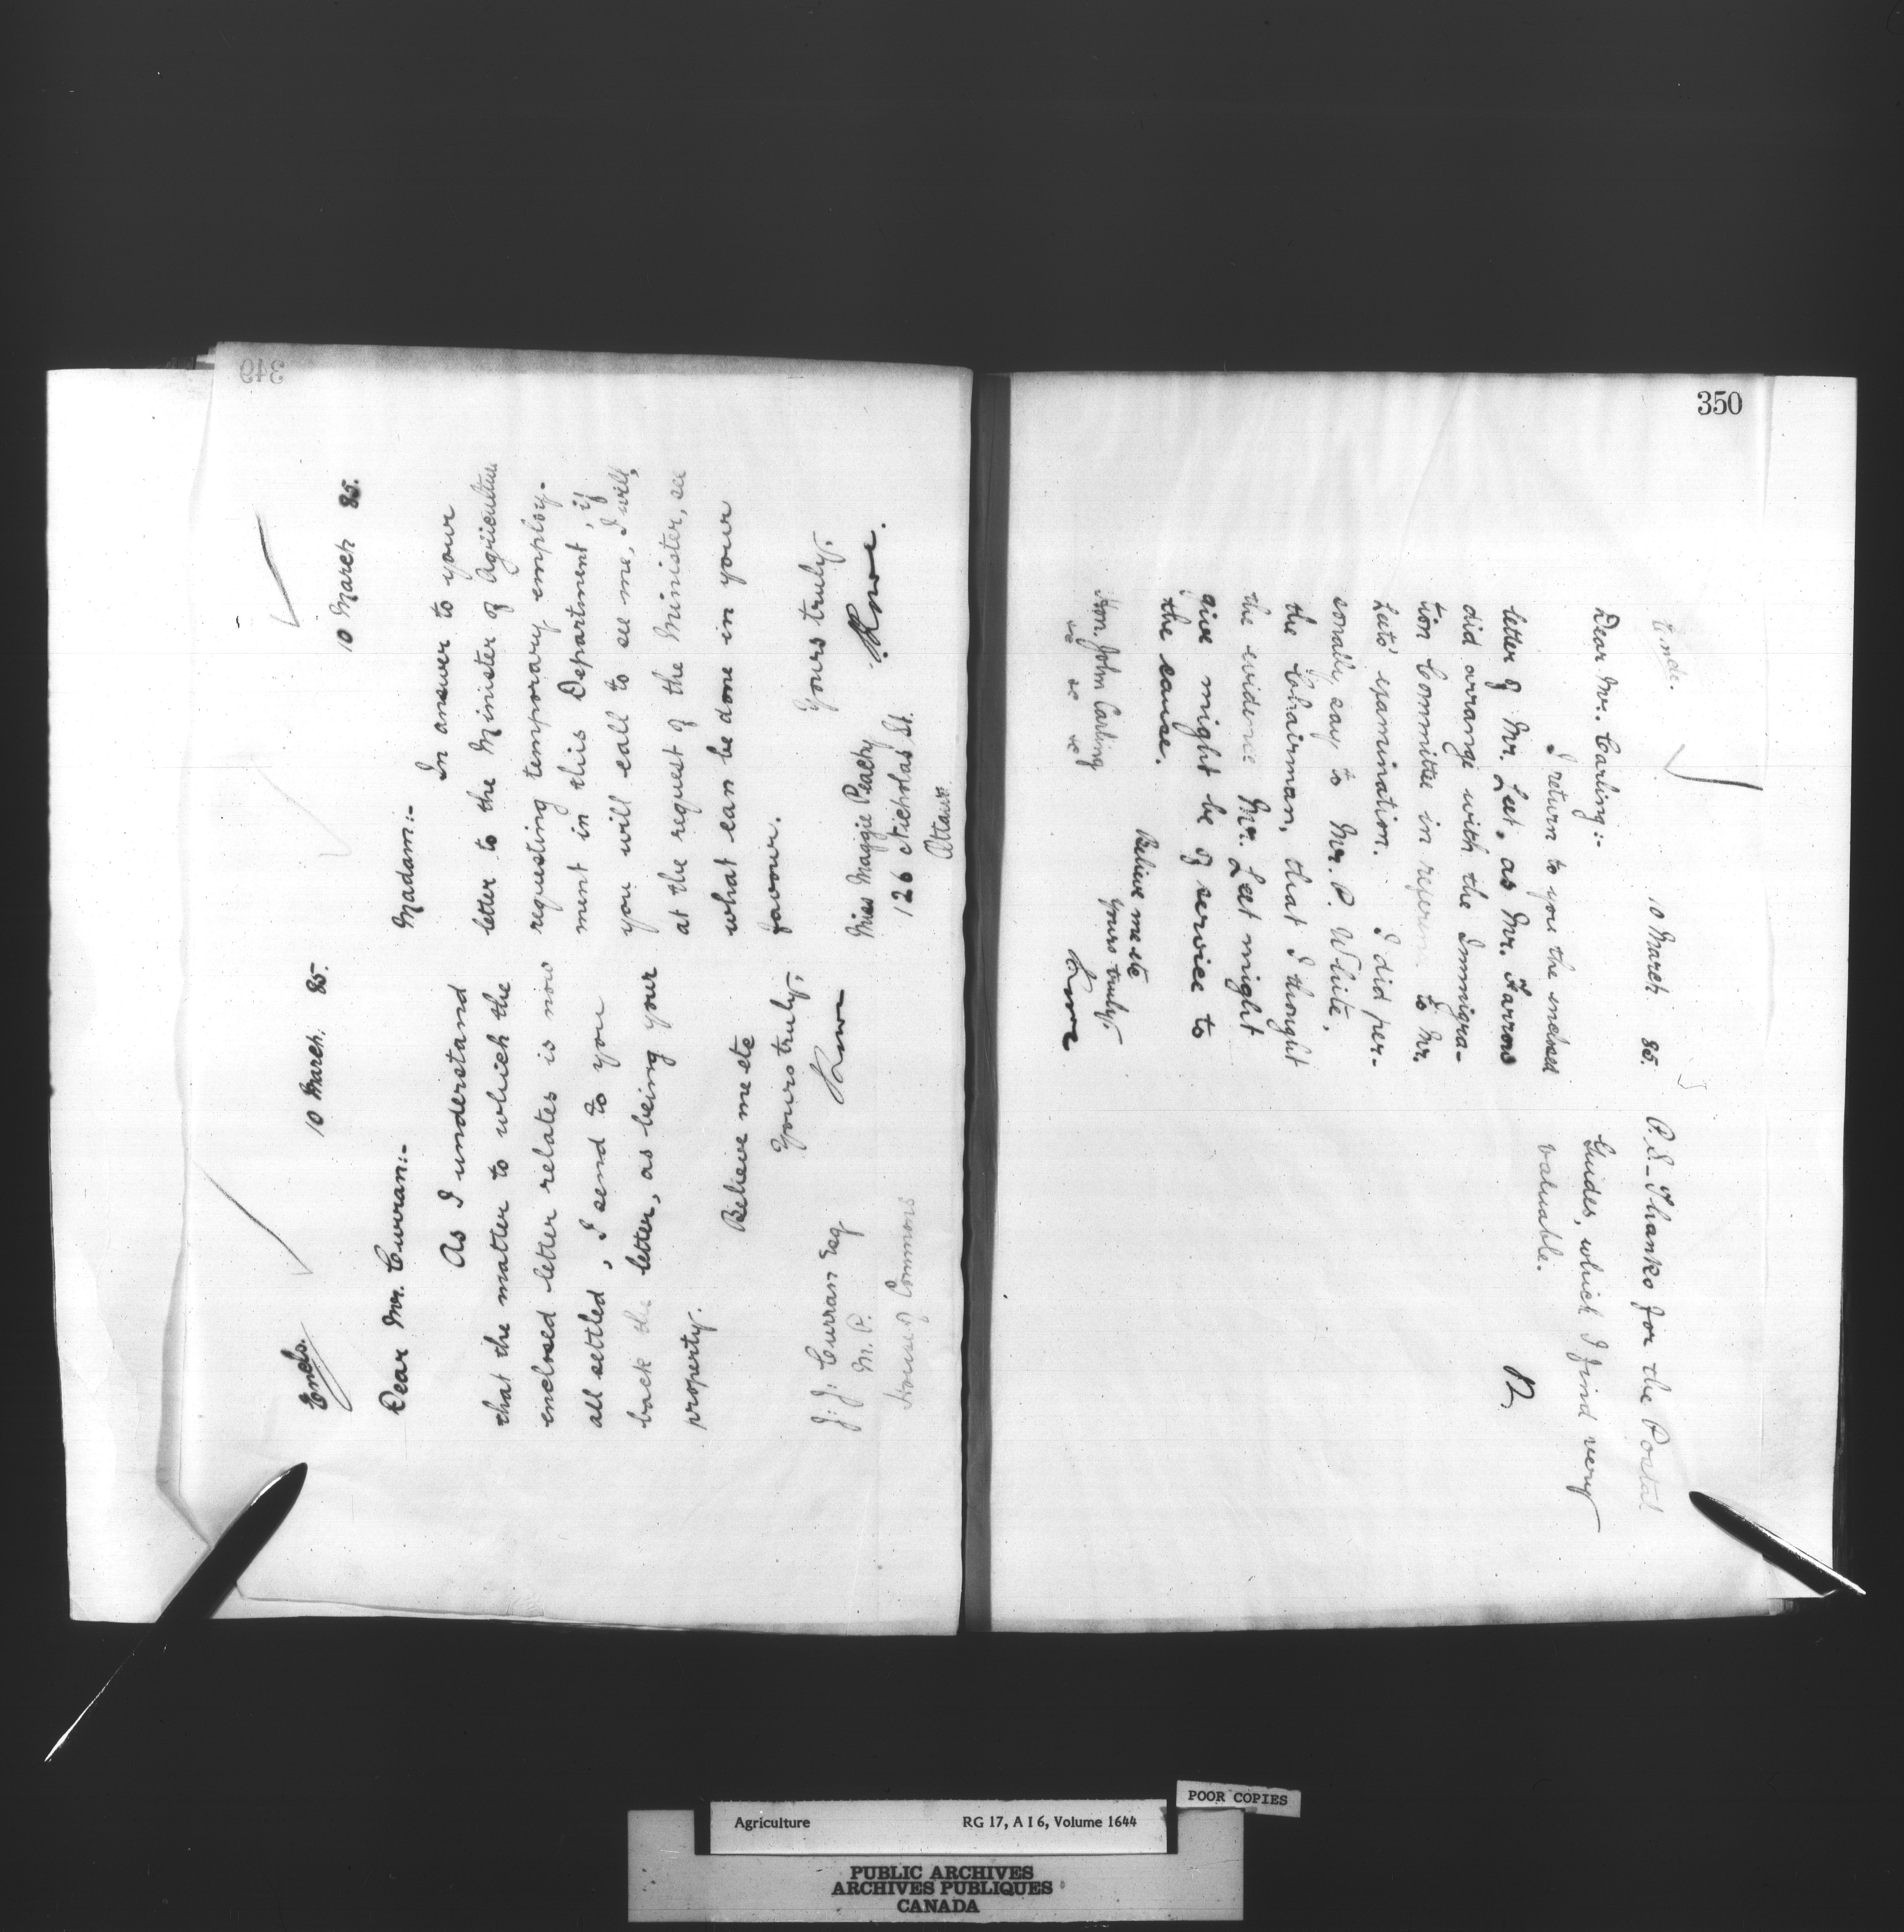 349
Encls.
10 March. 85.
Dear Mr. Curran:-
As I understand
that the matter to which the
enclosed letter relates is now
all settled, I send to you
back the letter, as being your
property.
Believe me etc
Yours truly,
J. J. Curran Esq
M. P.
House of Commons
10 March 85.
Madam:-
In answer to your
letter to the Minister of Agriculture
requesting temporary employ-
ment in this Department, if
you will call to see me, I will,
at the request of the Minister, see
what can be done in your
favour.
Yours truly,
Miss Maggie Peachy
126 Nicholas St.
Ottawa
350
Encls.
10 March 85.
Dear Mr. Carling:-
I return to you the enclosed
letter of Mr. Leet, as Mr. Farrow
did arrange with the Immigra-
tion Committee in reference to Mr.
Leet's examination. I did per-
sonally say to Mr. P. White,
the Chairman, that I thought
the evidence Mr. Leet might
give might be of service to
the cause.
Believe me etc
Yours truly,
Hon. John Carling
&c &c &c
P.S. Thanks for the Postal
Guides, which I find very
valuable.
Agriculture RG 17, A I 6, Volume 1644
POOR COPIES
PUBLIC ARCHIVES
ARCHIVES PUBLIQUES
CANADA